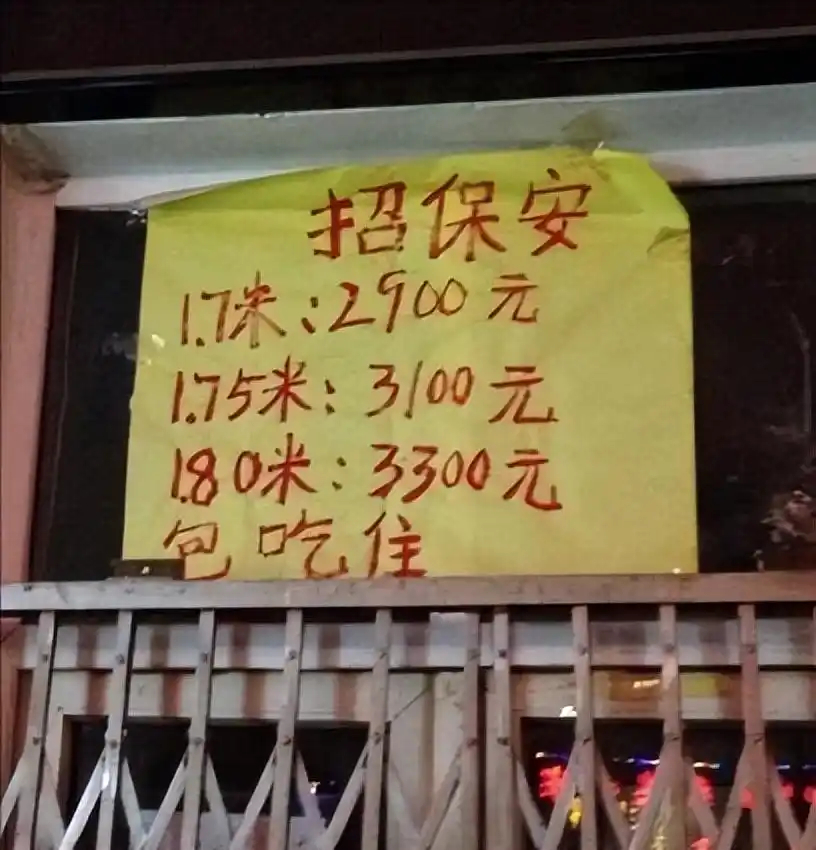 招保安
1.7米:2900元
1.75米:3100元
1.80米:3300元
包吃住